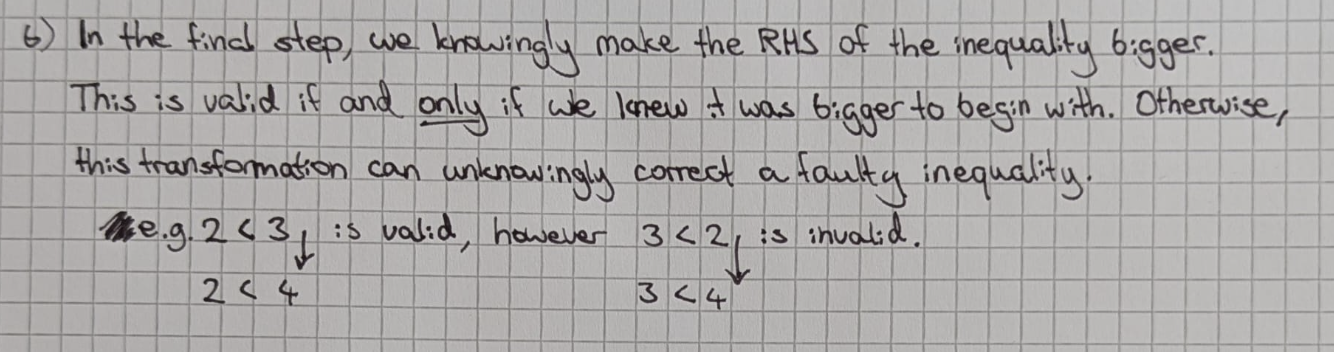 6) In the final step, we knowingly make the RHS of the inequality bigger.
This is valid if and only if we knew it was bigger to begin with. Otherwise,
this transformation can unknowingly correct a faulty inequality.
e.g. 2 < 3 ↓ is valid, however 3 < 2 ↓ is invalid.
2 < 4 3 < 4